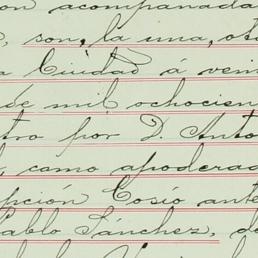 on acompañada
, son, la una, oto
a Ciudad á vein
de mil ochocien
tro por D. Anto
, como apoderad
pción Cosío ante
Pablo Sánchez, de